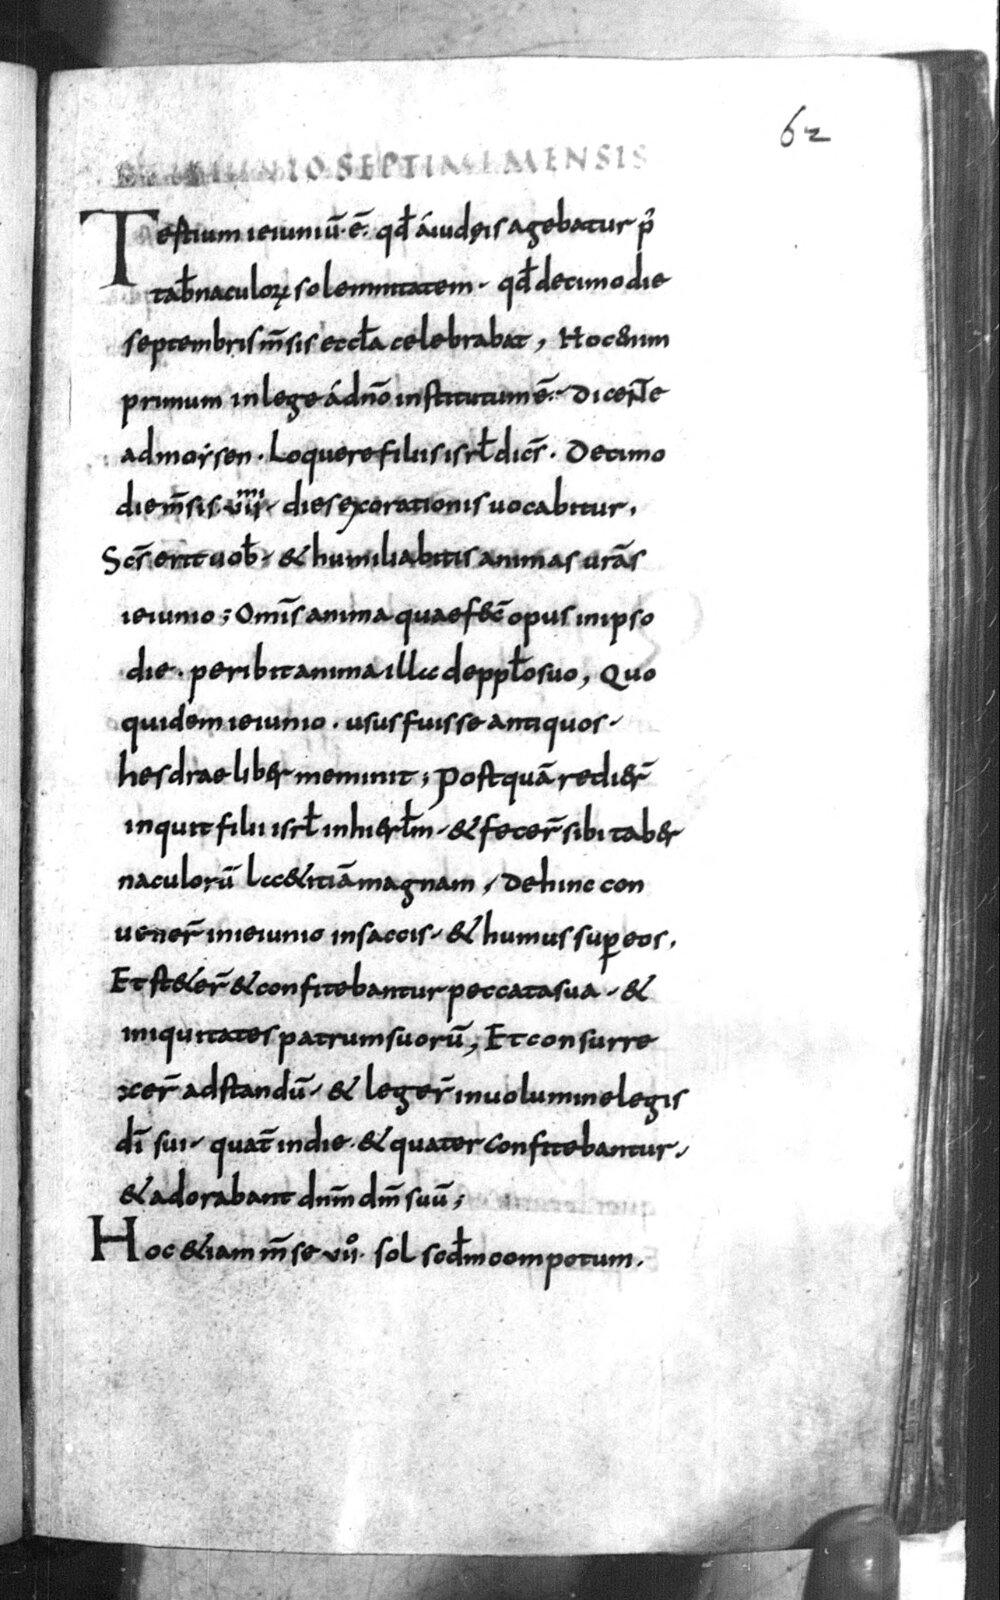 62
DE IEIUNIO SEPTIMI MENSIS
Testium ieiuniū·ē· qđ áiudęis agebatur p̄
tab̄naculoꝝ solemnitatem· qđ decimo die
septembris m̄sis eccła celebrabat, Hoc &um
primum in lege ádn̄o institutum ē· Dicen̄te
ad moẏsen· Loquere filiis isrł dic̄s· Decimo
die m̄sis· vii· mi dies exorationis uocabitur,
Sc̄s erit uob̄· & humiliabitis animas ur̄as
ieiunio; Omīs anima quae fec̄ opus in ipso
die· peribit anima illa de ppło suo, Quo
quidem ieiunio· usus fuisse antiquos·
hesdrae liber meminit; Postquā redier̄
inquit filii isrł in hierłm· & fecer̄ sibi taber
naculorū lae&itiā magnam, Dehinc con
uener̄ in ieiunio in saccis· & humus sup̱ eos,
Et st&er̄ & confitebantur peccata sua· &
iniquitates patrum suorū, Et consurre
xer̄ ad standū· & leger̄ in uolumine legis
dī sui· quat̄ in die· & quater confitebantur,
& adorabant dnm̄ dm̄ suū;
Hoc &iam m̄se viiº· sol scđm compotum,